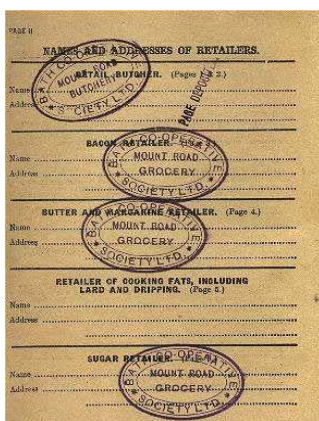 PAGE II
NAMES AND ADDRESSES OF RETAILERS.
RETAIL BUTCHER. (Pages
Name
Address
BATH CO-OPERATIVE
MOUNT ROAD
BUTCHERY
SOCIETY LTD.
PAGE DEPOSITED
BACON RETAILER.
Name
Address
BATH CO-OPERATIVE
MOUNT ROAD
GROCERY
SOCIETY LTD.
BUTTER AND MARGARINE RETAILER. (Page 4.)
Name
Address
BATH CO-OPERATIVE
MOUNT ROAD
GROCERY
SOCIETY LTD.
RETAILER OF COOKING FATS, INCLUDING
LARD AND DRIPPING. (Page 5.)
Name
Address
SUGAR RETAILER.
Name
Address
BATH CO-OPERATIVE
MOUNT ROAD
GROCERY
SOCIETY LTD.